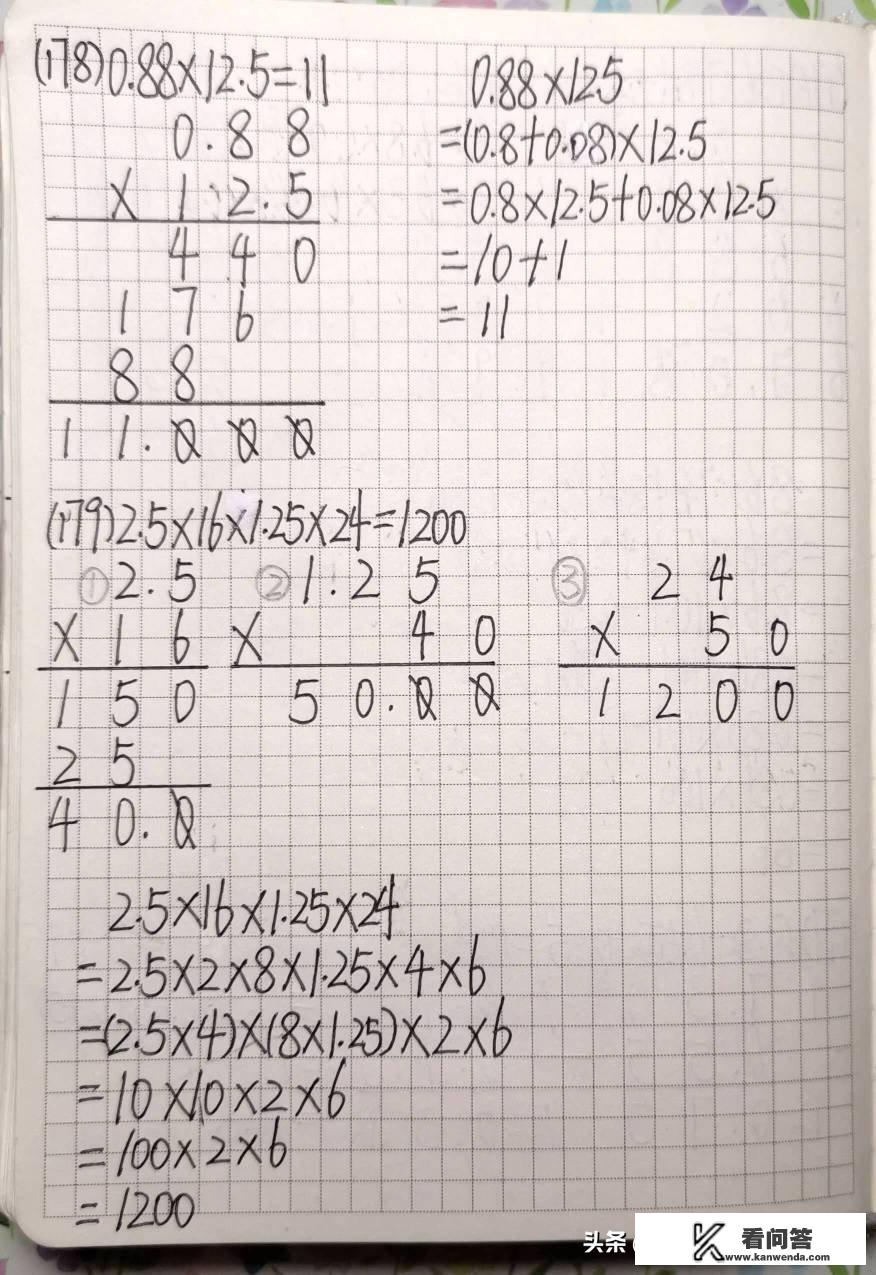 (178)0.88×12.5=11
0.88
×12.5
440
176
88
11.000
0.88×125
=(0.8+0.08)×12.5
=0.8×12.5+0.08×12.5
=10+1
=11
(179)2.5×16×1.25×24=1200
①2.5
×16
150
25
40.0
②1.25
×40
50.00
③24
×50
1200
2.5×16×1.25×24
=2.5×2×8×1.25×4×6
=(2.5×4)×(8×1.25)×2×6
=10×10×2×6
=100×2×6
=1200
头条
看问答
www.kanwenda.com